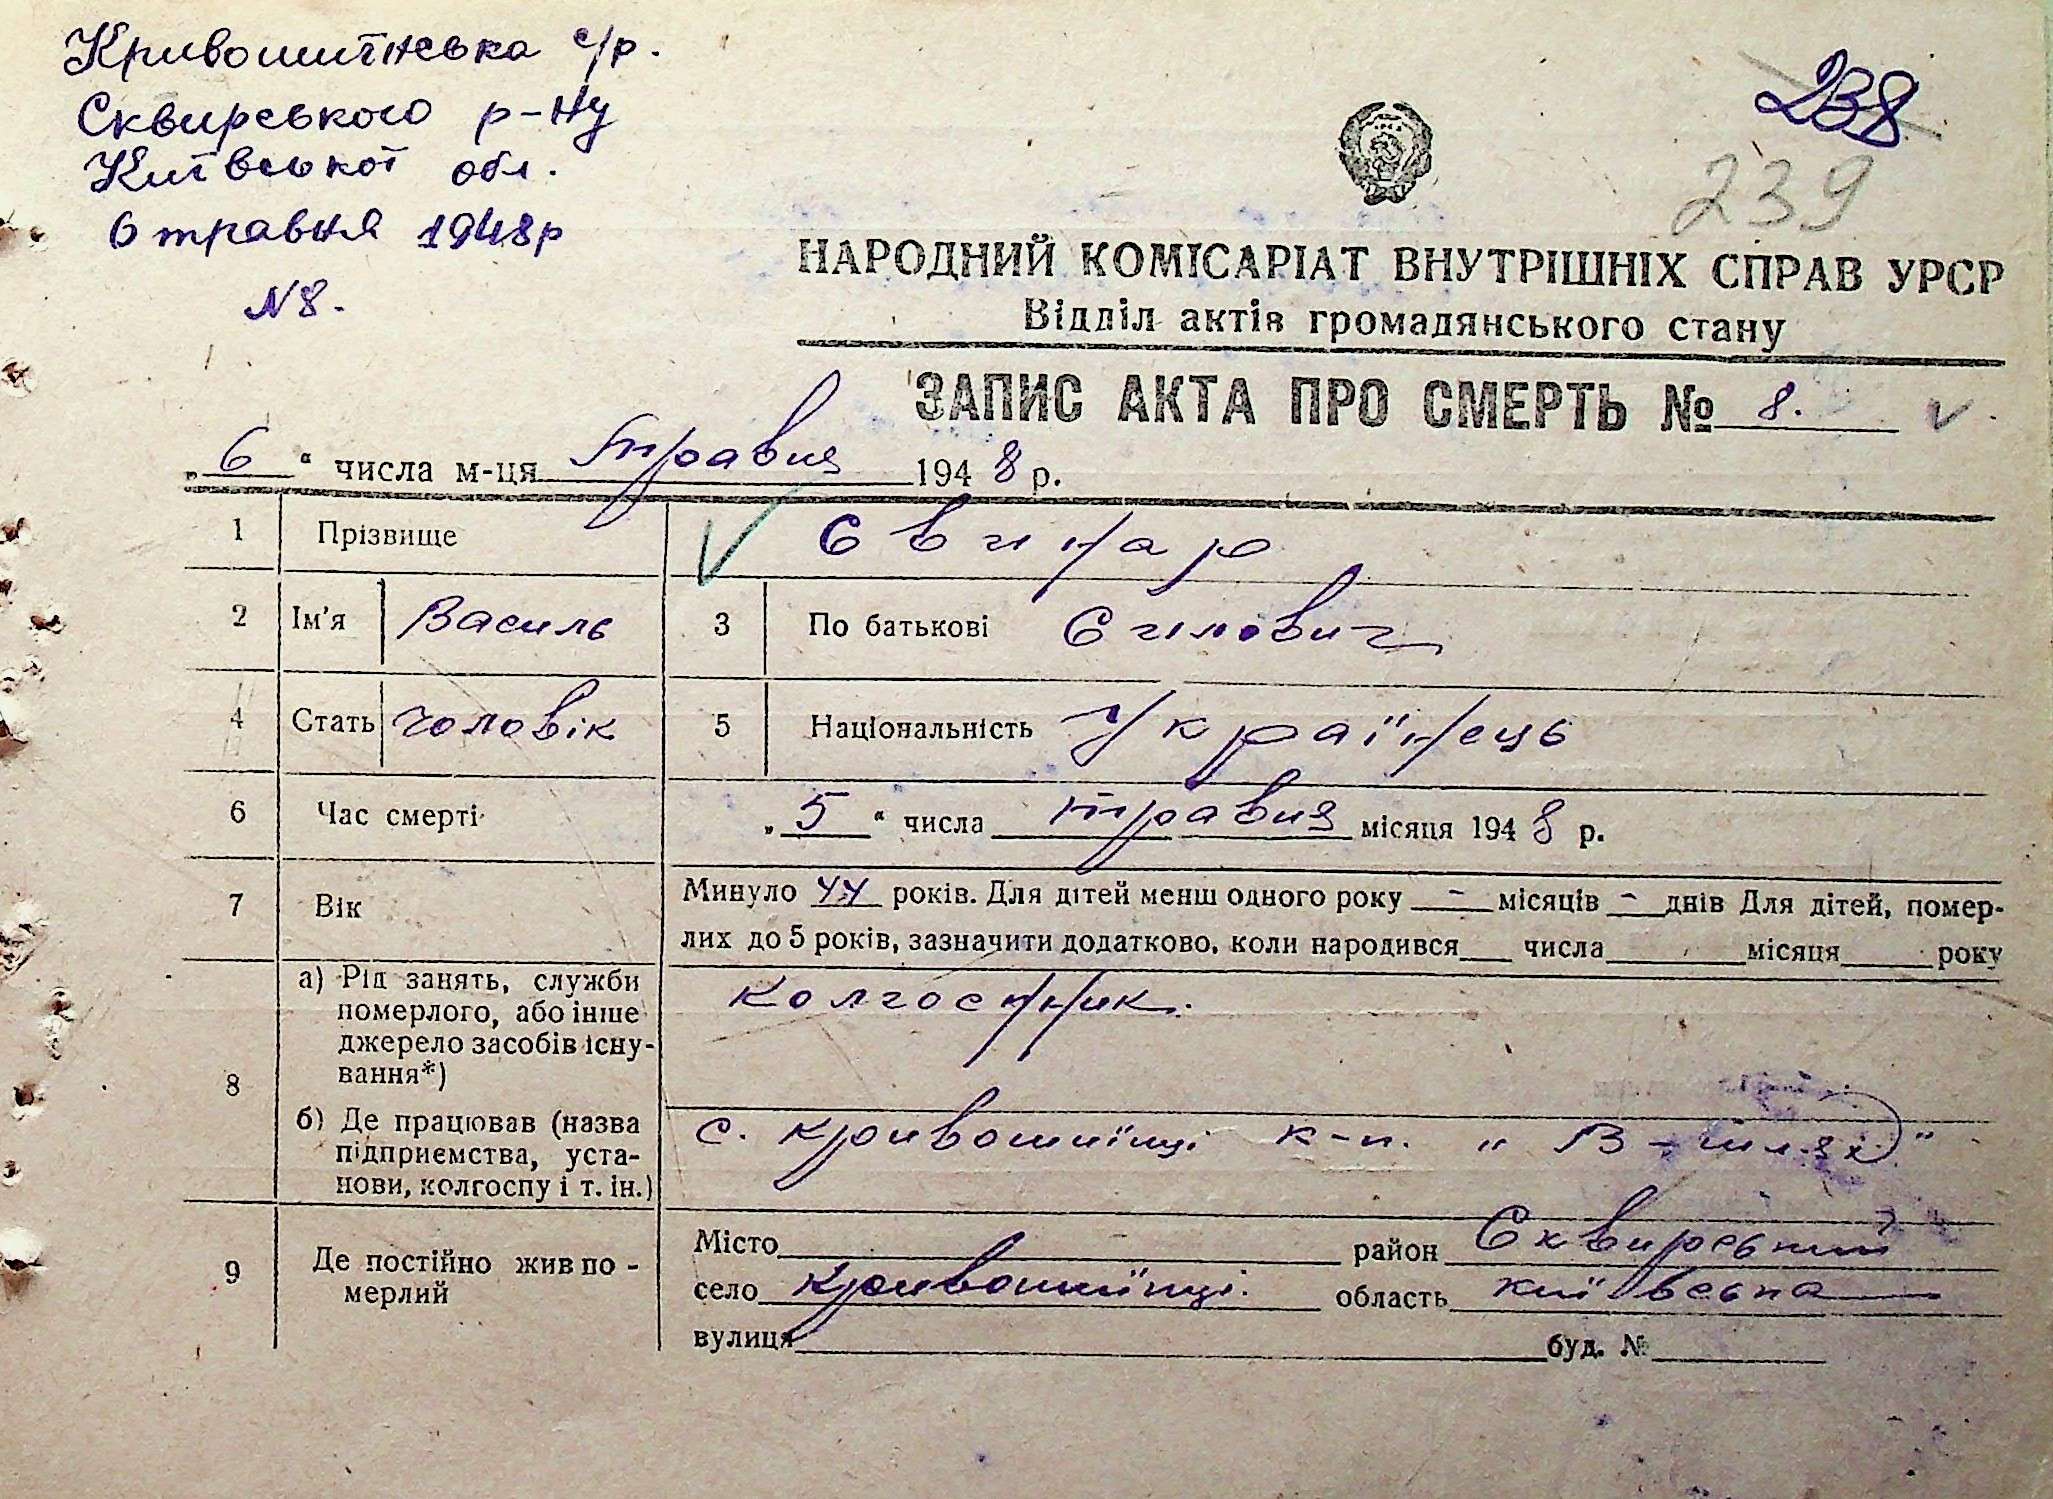 Кривошиїнська с/р.
Сквирського р-ну
Київської обл.
6 травня 1948р
N8.
238
239
НАРОДНИЙ КОМІСАРІАТ ВНУТРІШНІХ СПРАВ УРСР
Відділ актів громадянського стану
ЗАПИС АКТА ПРО СМЕРТЬ № 8.
„6“ числа м-ця травня 1948 р.
1 Прізвище Свинар
2 Ім'я Василь 3 По батькові
4 Стать чоловік 5 Національність Українець
6 Час смерті „5“ числа травня місяця 1948 р.
7 Вік Минуло 44 років. Для дітей менш одного року - місяців - днів Для дітей, помер-
лих до 5 років, зазначити додатково, коли народився числа місяця року
8 а) Рід занять, служби
померлого, або інше
джерело засобів існу-
вання*)
колгоспник.
б) Де працював (назва
підприємства, уста-
нови, колгоспу і т. ін.)
с. Кривошиїнці к-п. „В-шлях"
9 Де постійно жив по-
мерлий
Місто район Сквирський
село Кривошиїнці. область Київська
вулиця буд. №